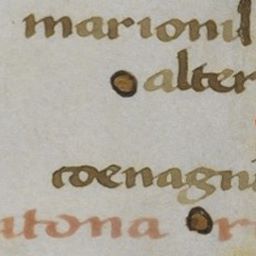 marionil
alter
coenagni
utona ori